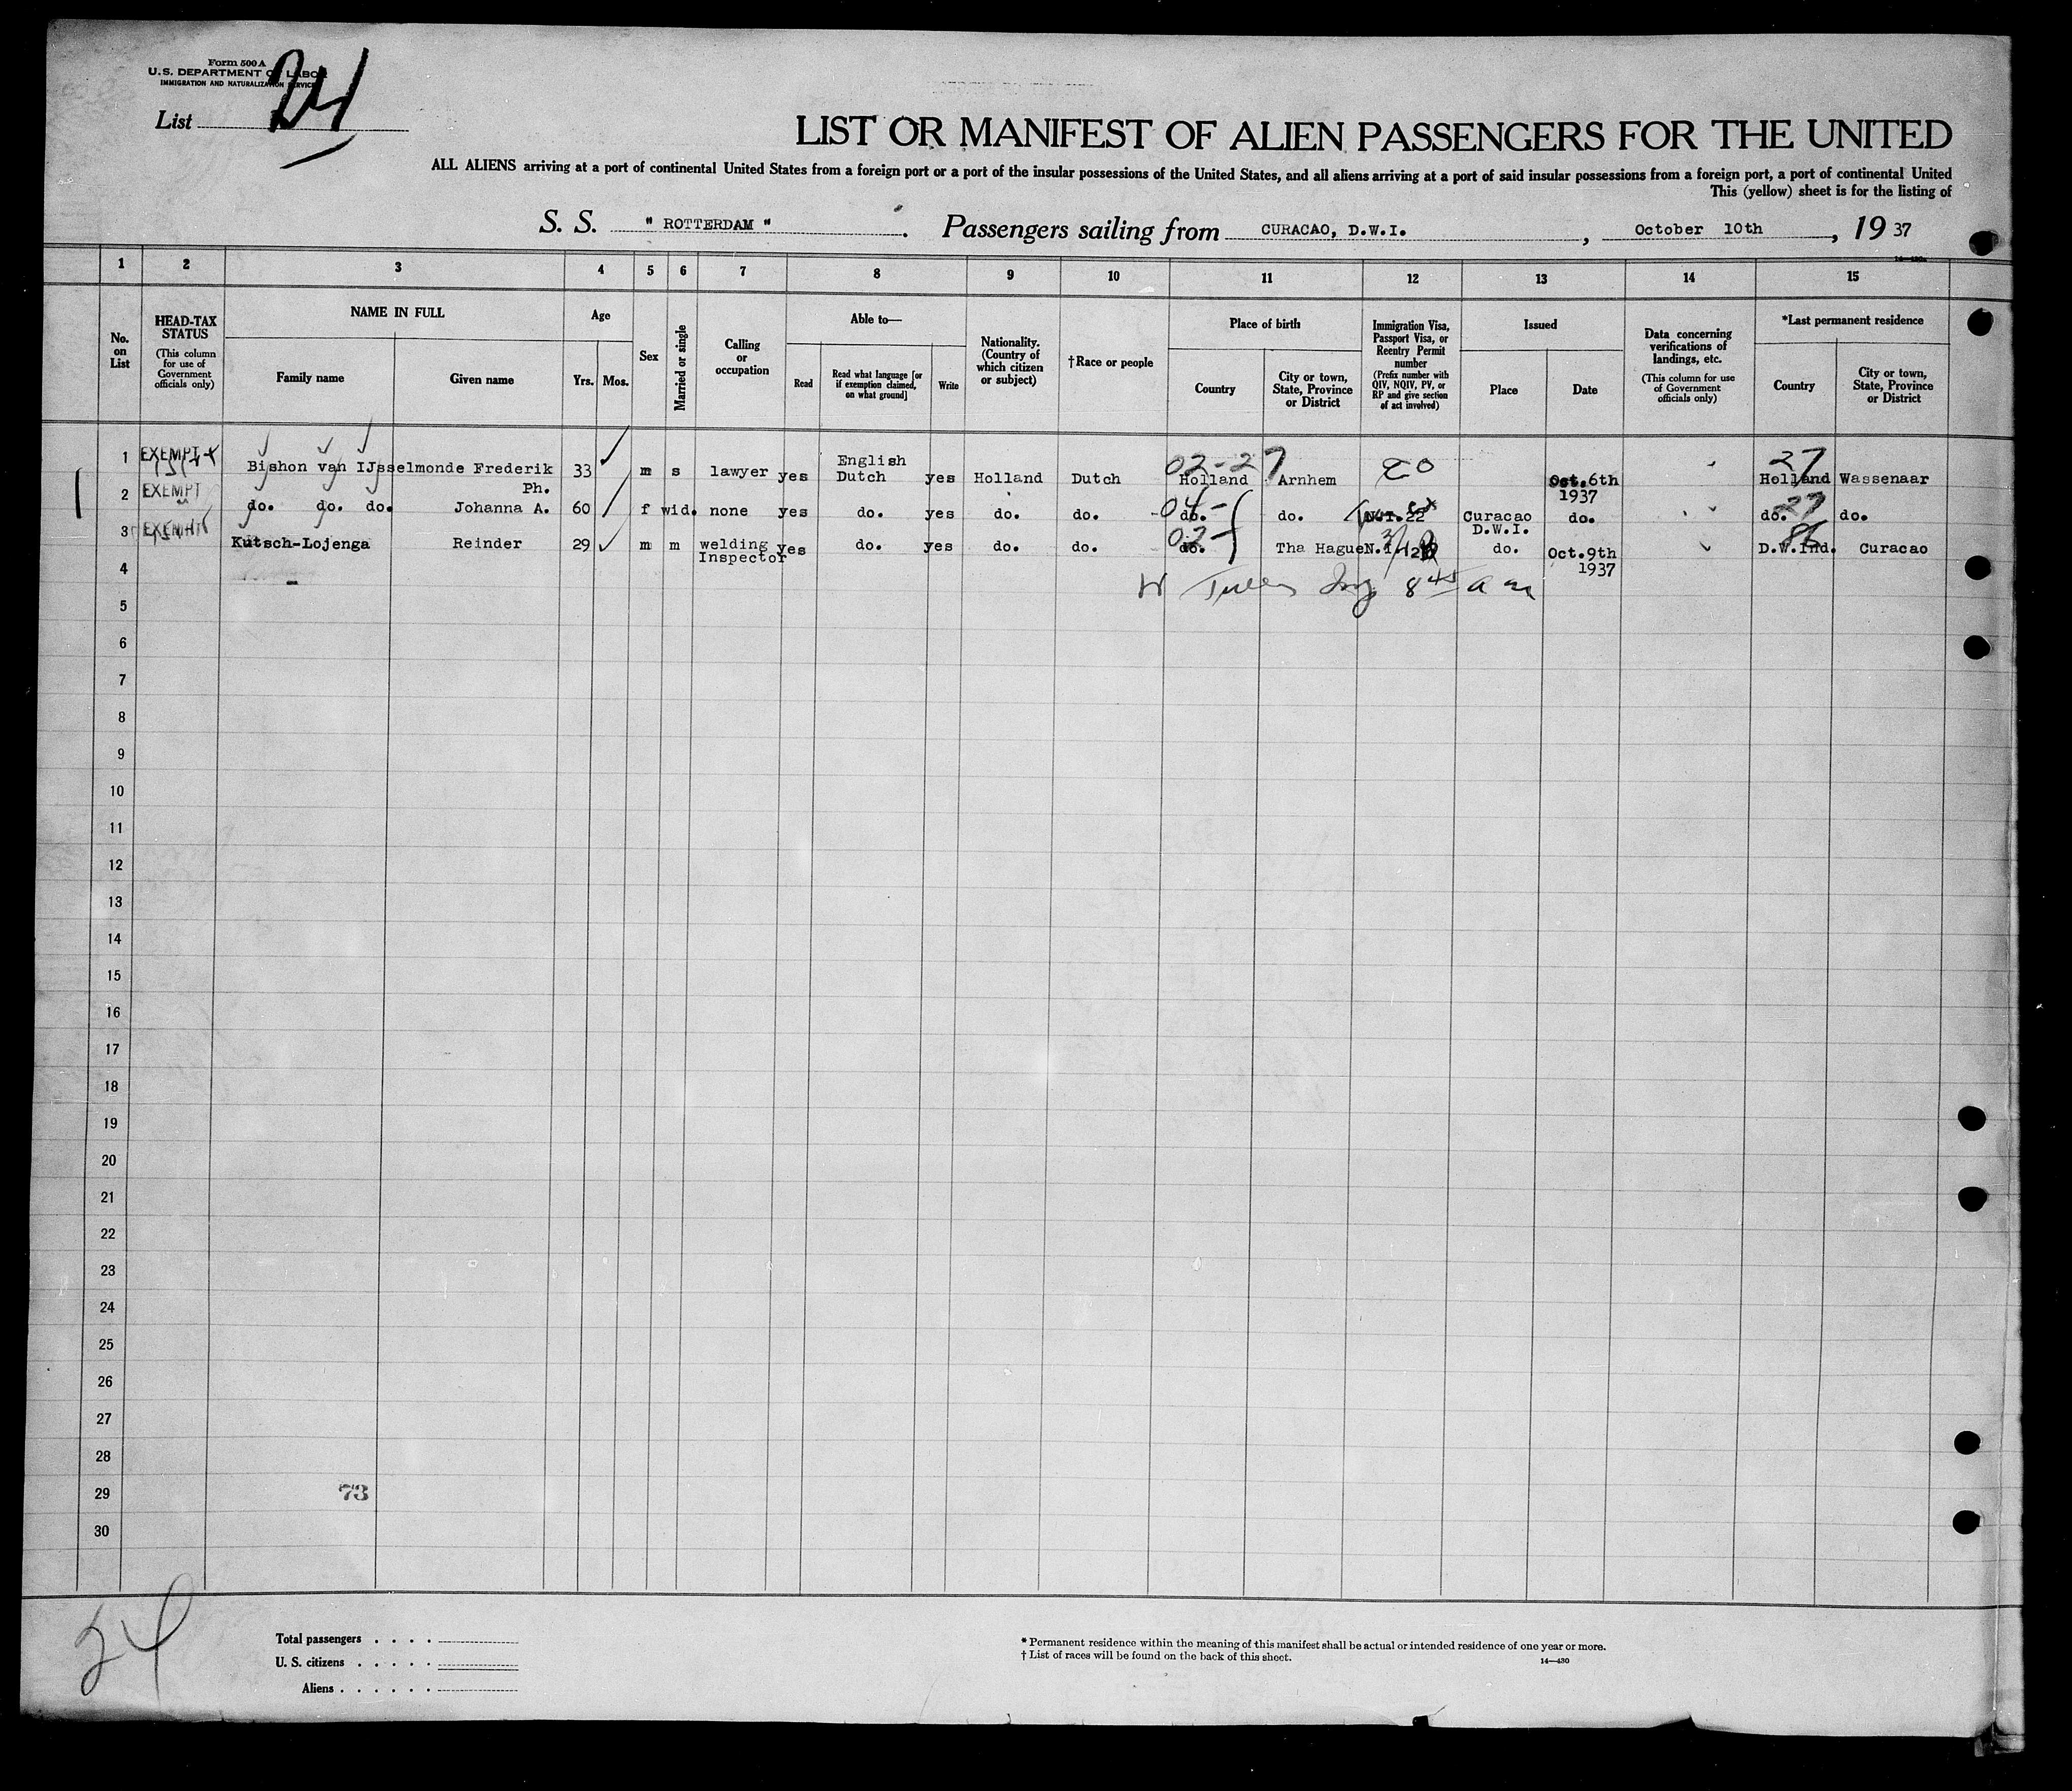 Form 500 A
U.S. DEPARTMENT OF LABOR
IMMIGRATION AND NATURALIZATION SERVICE
List 24
LIST OR MANIFEST OF ALIEN PASSENGERS FOR THE UNITED
ALL ALIENS arriving at a port of continental United States from a foreign port or a port of the insular possessions of the United States, and all aliens arriving at a port of said insular possessions from a foreign port, a port of continental United
This (yellow) sheet is for the listing of
S. S. " ROTTERDAM " . Passengers sailing from CURACAO, D.W.I. , October 10th , 19 37
1 2 3 4 5 6 7 8 9 10 11 12 13 14 15
No. on List
HEAD-TAX STATUS (This column for use of Government officials only)
NAME IN FULL
Family name Given name
Age
Yrs. Mos.
Sex
Married or single
Calling or occupation
Able to—
Read Read what language [or if exemption claimed, on what ground] Write
Nationality. (Country of which citizen or subject)
†Race or people
Place of birth
Country City or town, State, Province or District
Immigration Visa, Passport Visa, or Reentry Permit number (Prefix number with QIV, NQIV, PV, or RP and give section of act involved)
Issued
Place Date
Data concerning verifications of landings, etc. (This column for use of Government officials only)
*Last permanent residence
Country City or town, State, Province or District
1 EXEMPT Bishon van IJsselmonde Frederik Ph. 33 m s lawyer yes English Dutch yes Holland Dutch 02-27 Holland Arnhem Oct.6th 1937 27 Holland Wassenaar
2 EXEMPT do. do. do. Johanna A. 60 f wid. none yes do. yes do. do. 04- do. do. N.I.22 Curacao D.W.I. do. 27 do. do.
3 EXEMPT Kutsch-Lojenga Reinder 29 m m welding Inspector yes do. yes do. do. 02- do. Tha Hague do. Oct.9th 1937 86 D.W.Ind. Curacao
4
8 45 a m
5
6
7
8
9
10
11
12
13
14
15
16
17
18
19
20
21
22
23
24
25
26
27
28
29 73
30
24
Total passengers . . . .
U. S. citizens . . . . .
Aliens . . . . . .
* Permanent residence within the meaning of this manifest shall be actual or intended residence of one year or more.
† List of races will be found on the back of this sheet.
14—430